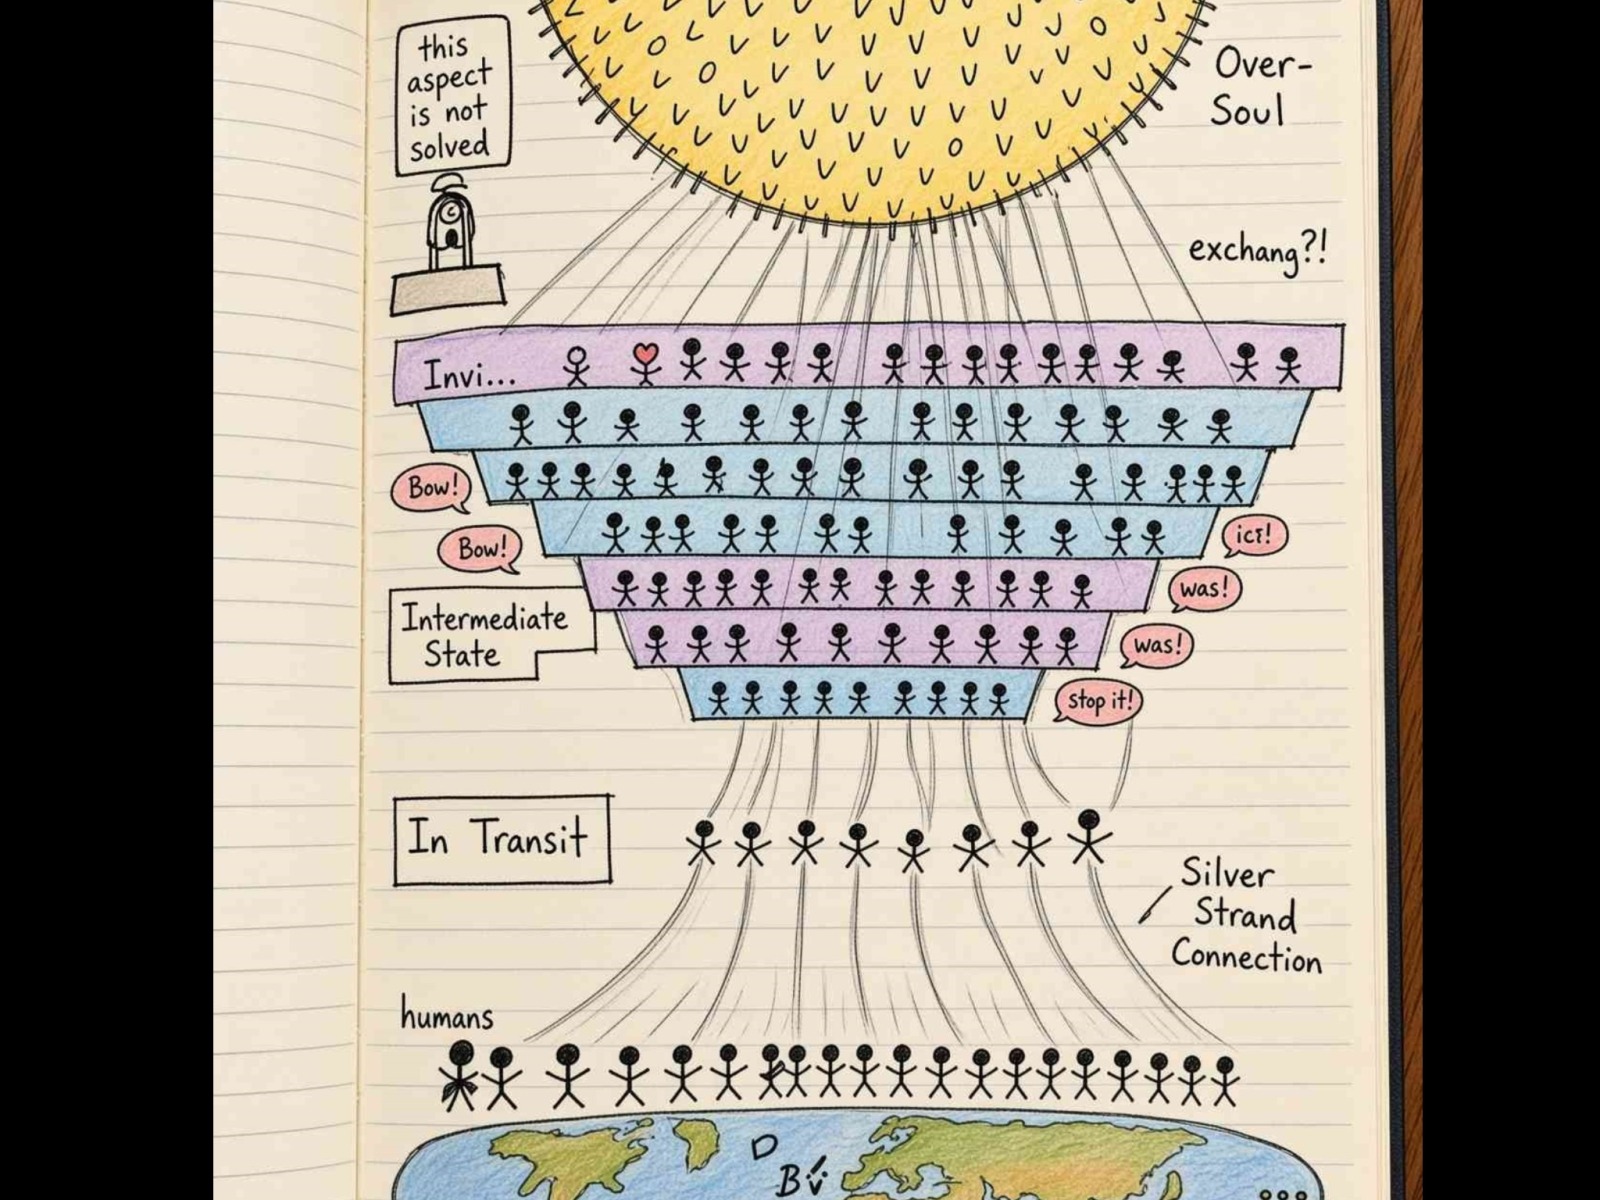 this
aspect
is not
solved
Over-
Soul
exchang?!
Invi...
Bow!
Bow!
was!
was!
stop it!
Intermediate
State
In Transit
Silver
Strand
Connection
humans